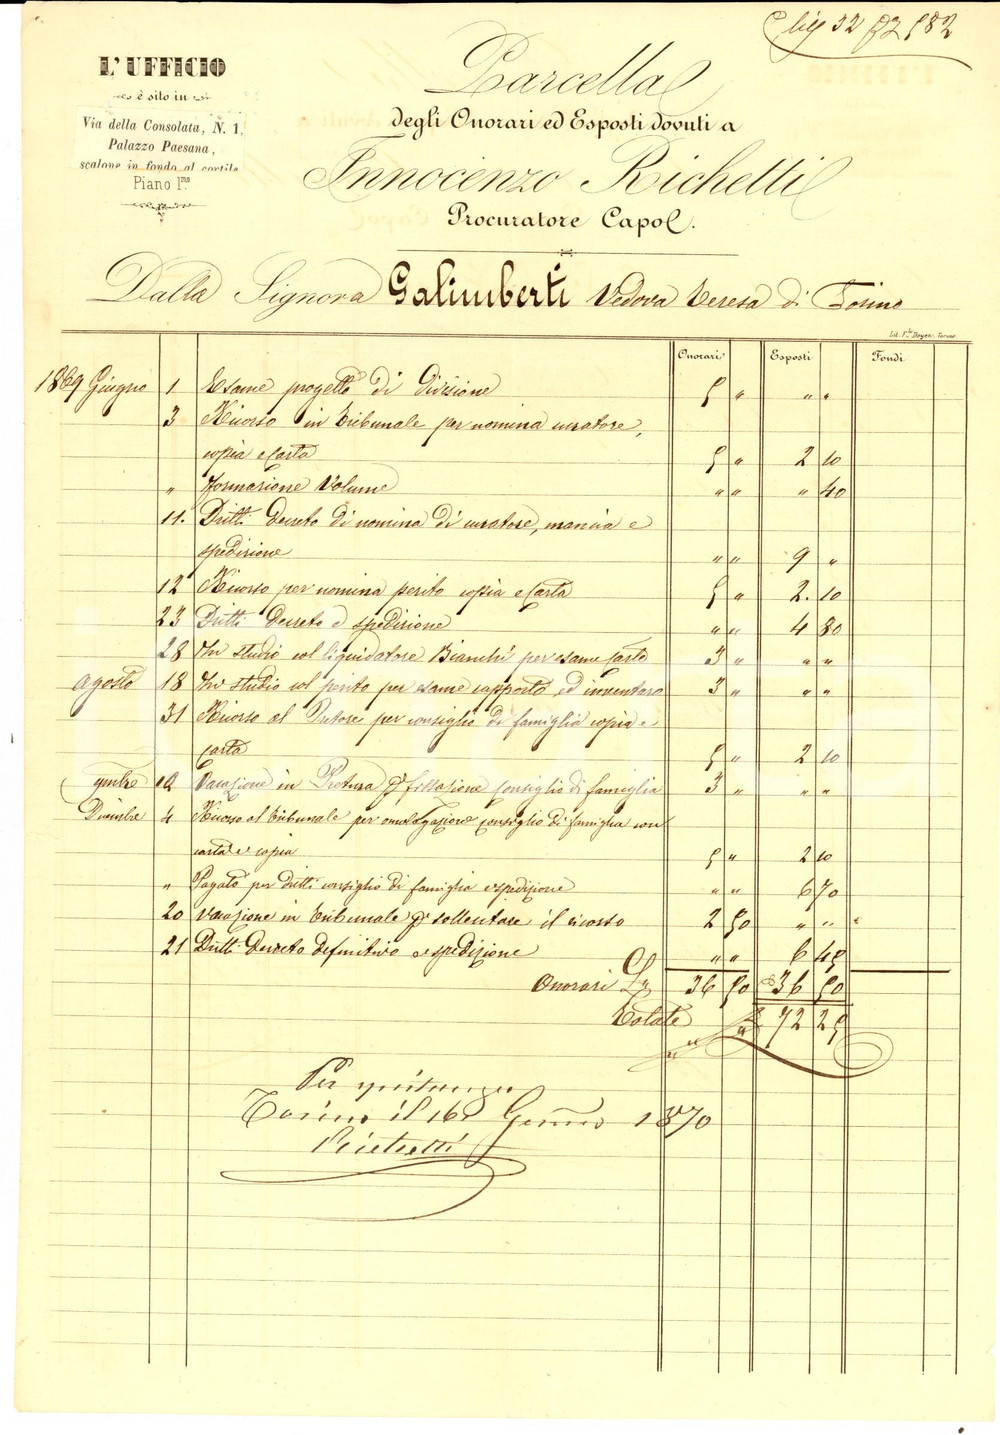 L'UFFICIO
è sito in
Via della Consolata, N. 1,
Palazzo Paesana,
scalone in fondo al cortile
Piano 1.mo
Parcella
degli Onorari ed Esposti dovuti a
Innocenzo Richetti
Procuratore Capol.
Dalla Signora Galimberti Vedova Teresa di Torino
Lit. F.lli Doyen. Torino
Onorari Esposti Fondi
1869 Giugno 1 Esame progetto di divisione 5 " " "
3 Ricorso in tribunale per nomina curatore,
copia e carta 5 " 2 10
" formazione Volume " " " 40
11. Dritti decreto di nomina di curatore, mancia e
spedizione " " 9 "
12 Ricorso per nomina perito copia e carta 5 " 2. 10
23 Dritti Decreto e spedizione " " 4 80
28 In studio col liquidatore Bianchi per esame carte 3 " " "
agosto 18 In studio col perito per esame rapporto ed inventaro 3 " " "
31 Ricorso al Pretore per consiglio di famiglia copia e
carta 5 " 2 10
9mbre 12 Vacazione in Pretura p fissazione consiglio di famiglia 3 " " "
Dicembre 4 Ricorso al tribunale per omologazione consiglio di famiglia con
carta e copia 5 " 2 10
" Pagato per dritti consiglio di famiglia e spedizione " " 6 70
20 vacazione in tribunale p sollecitare il ricorso 2 50 " "
21 Dritti Decreto definitivo e spedizione " " 6 45
Onorari L. 36 50 36 50
Totale 72 25
Per quitanza
Torino il 16 Genn. 1870
Richetti